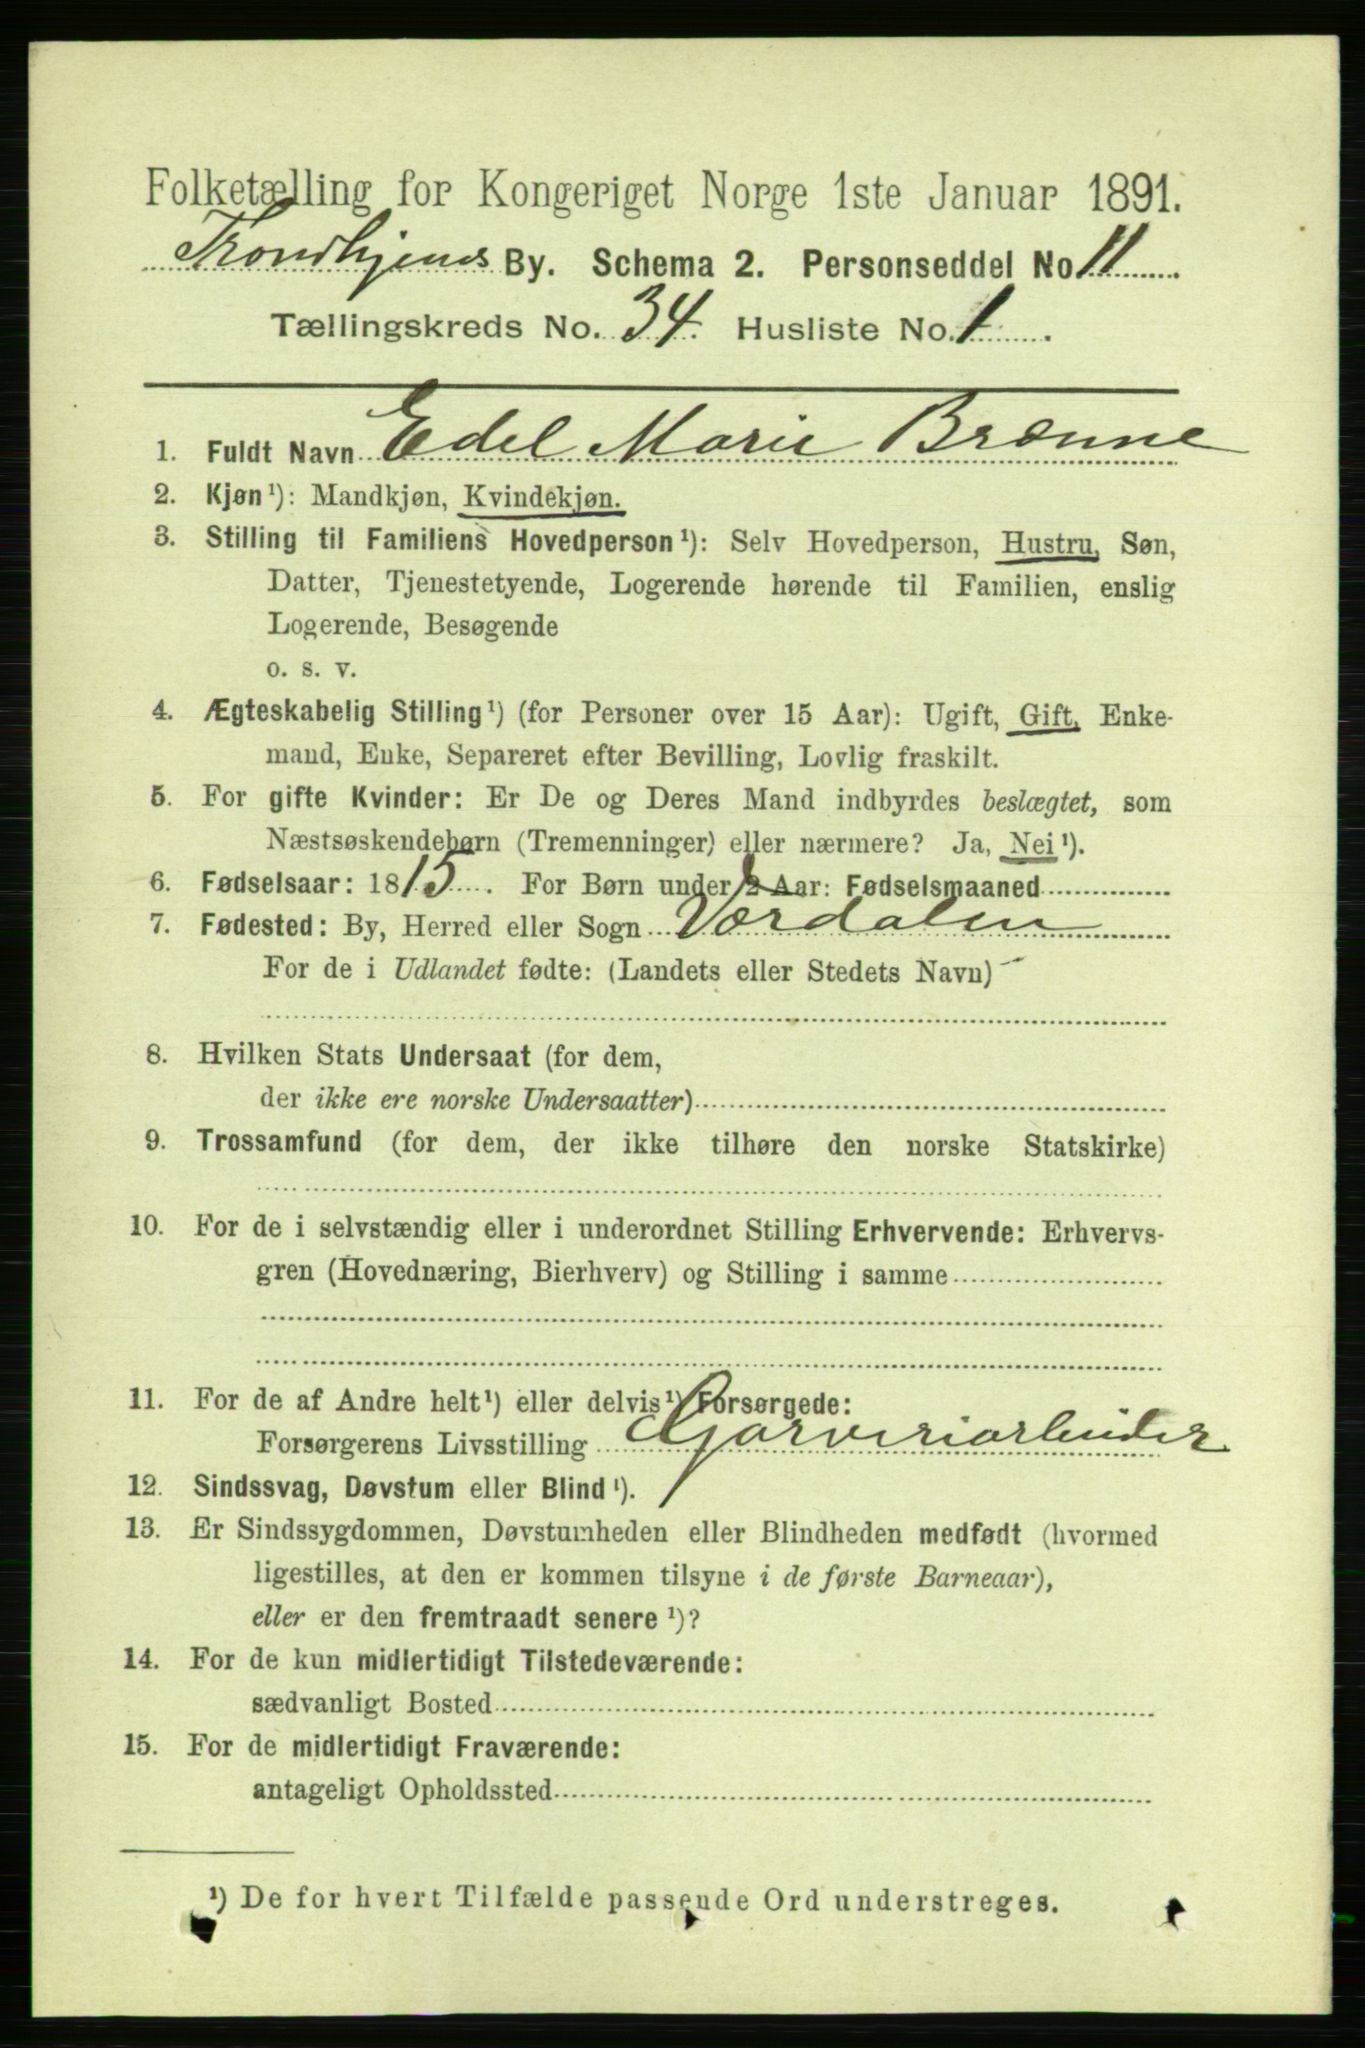 Folketælling for Kongeriget Norge 1ste Januar 1891.
Trondhjems By. Schema 2. Personseddel No 11
Tællingskreds No. 34. Husliste No. 1
1. Fuldt Navn Edel Marie Brønne
2. Kjøn¹): Mandkjøn, Kvindekjøn.
3. Stilling til Familiens Hovedperson¹): Selv Hovedperson, Hustru, Søn,
Datter, Tjenestetyende, Logerende hørende til Familien, enslig
Logerende, Besøgende
o. s. v.
4. Ægteskabelig Stilling¹) (for Personer over 15 Aar): Ugift, Gift, Enke-
mand, Enke, Separeret efter Bevilling, Lovlig fraskilt.
5. For gifte Kvinder: Er De og Deres Mand indbyrdes beslægtet, som
Næstsøskendebørn (Tremenninger) eller nærmere? Ja, Nei¹).
6. Fødselsaar: 1815. For Børn under 2 Aar: Fødselsmaaned
7. Fødested: By, Herred eller Sogn Værdalen
For de i Udlandet fødte: (Landets eller Stedets Navn)
8. Hvilken Stats Undersaat (for dem,
der ikke ere norske Undersaatter)
9. Trossamfund (for dem, der ikke tilhøre den norske Statskirke)
10. For de i selvstændig eller i underordnet Stilling Erhvervende: Erhvervs-
gren (Hovednæring, Bierhverv) og Stilling i samme
11. For de af Andre helt¹) eller delvis¹) Forsørgede:
Forsørgerens Livsstilling Garveriarbeider
12. Sindssvag, Døvstum eller Blind¹).
13. Er Sindssygdommen, Døvstumheden eller Blindheden medfødt (hvormed
ligestilles, at den er kommen tilsyne i de første Barneaar),
eller er den fremtraadt senere¹)?
14. For de kun midlertidigt Tilstedeværende:
sædvanligt Bosted
15. For de midlertidigt Fraværende:
antageligt Opholdssted
¹) De for hvert Tilfælde passende Ord understreges.